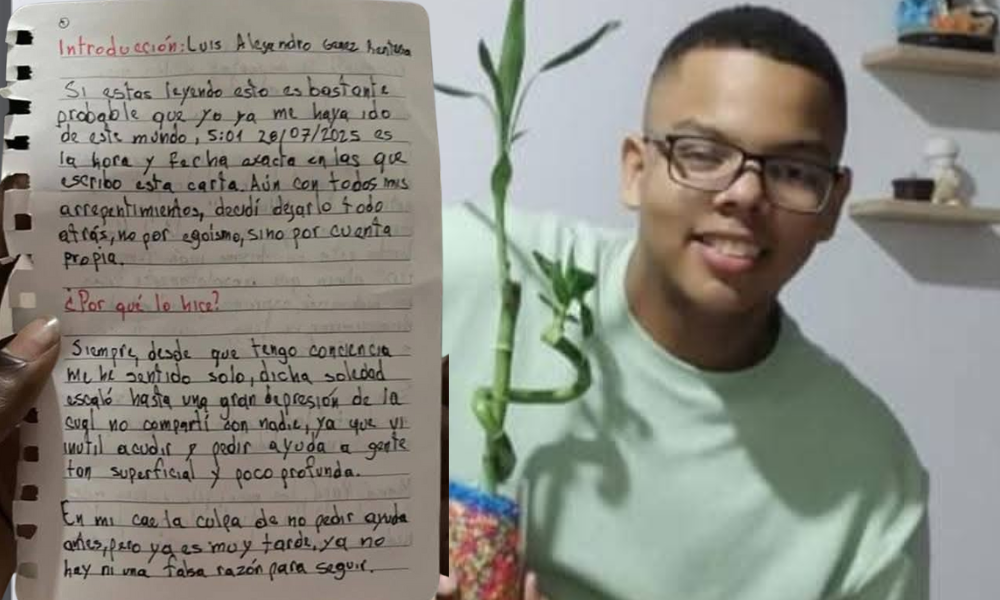 Introducción: Luis Alejandro
Si estas leyendo esto es bastante
probable que yo ya me haya ido
de este mundo, 5:01 28/07/2025 es
la hora y fecha exacta en las que
escribo esta carta. Aún con todos mis
arrepentimientos, decidí dejarlo todo
atrás, no por egoísmo, sino por cuenta
propia.
¿Por qué lo hice?
Siempre, desde que tengo conciencia
me he sentido solo, dicha soledad
escaló hasta una gran depresión de la
cual no compartí con nadie, ya que vi
inutil acudir y pedir ayuda a gente
tan superficial y poco profunda.
En mi cae la culpa de no pedir ayuda
antes, pero ya es muy tarde, ya no
hay ni una falsa razón para seguir.